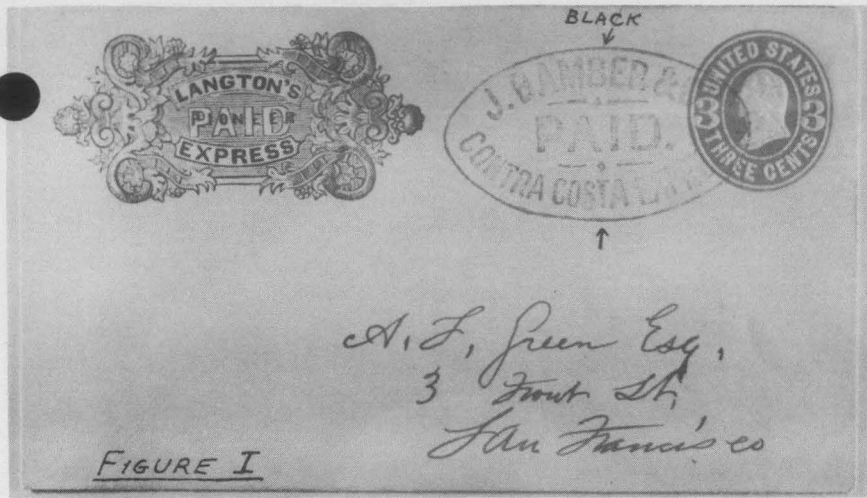 BLACK
LANGTON'S
PIONEER
PAID
EXPRESS
J. BAMBER &
PAID.
CONTRA COSTA
UNITED STATES
3 3
THREE CENTS
A. F. Green Esq.
3 Front St,
San Francisco
FIGURE I